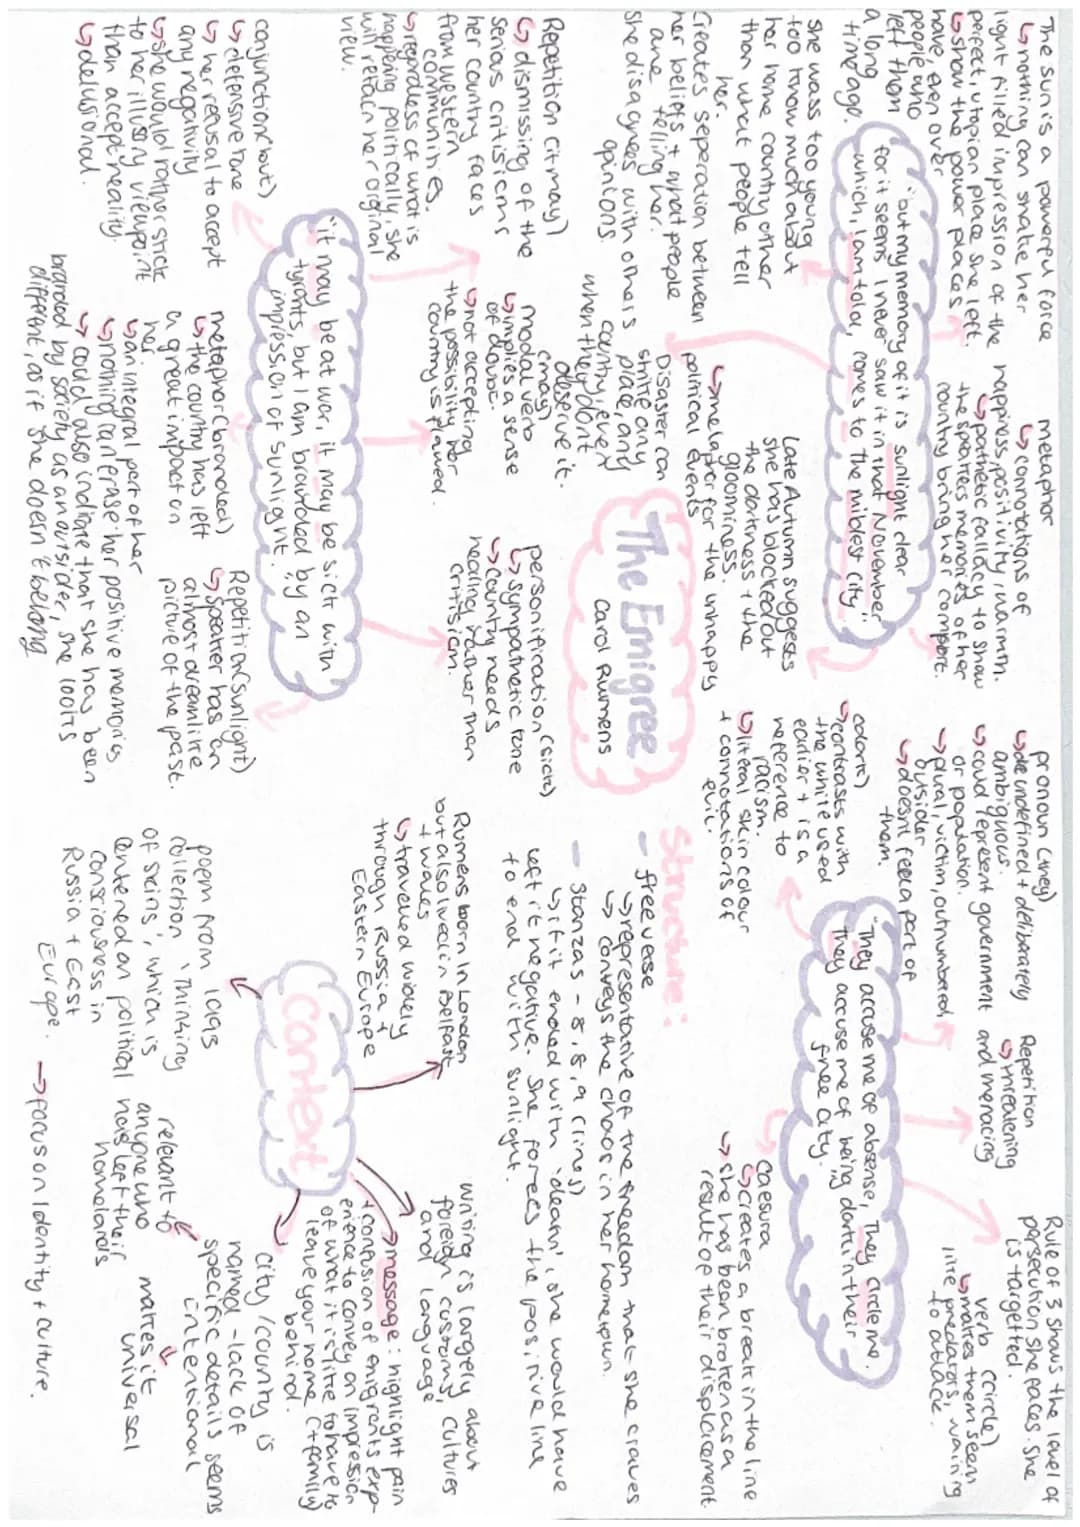 The sun is a powerful force
↳ nothing can shake her
light filled impression of the
perfect, utopian place she left.
↳ show the power places
have, even over
people who
left them
a long
time ago.
metaphor
↳ connotations of
happiness, positivity, warmth.
↳ pathetic fallacy to show
the speakers memories of her
country bring her comfort.
"but my memory of it is sunlight clear
for it seems I never saw it in that November
which, I am told, comes to the mildest city."
she was too young
too know much about
her home country other
than what people tell
her.
Creates seperation between
her beliefs + what people
are telling her.
she disagrees with others
opinions.
↳ metaphor for the unhappy
political events
Disaster can
strike any
place, any
country, even
when they dont
deserve it.
Late Autumn suggests
she has blocked out
the darkness + the
gloominess.
The Emigree
Carol Rumens
Repetition (it may)
↳ dismissing of the
serious criticisms
her country faces
from western
communities.
↳ regardless of what is
happening politically, she
will retain her original
view.
modal verb
(may)
↳ implies a sense
of doubt.
↳ not accepting
the possibility her
country is flawed.
personification (sick)
↳ sympathetic tone
↳ country needs
healing rather than
critisism.
"it may be at war, it may be sick with
tyrants, but I am branded by an
impression of sunlight."
conjunction (but)
↳ defensive tone
↳ her refusal to accept
any negativity
↳ she would rather stick
to her illusory viewpoint
than accept reality.
↳ delusional.
metaphor (branded)
↳ the country has left
a great impact on
her
↳ an integral part of her
↳ nothing can erase her positive memories
↳ could also indicate that she has been
branded by society as an outsider, she looks
different, as if she doesn't belong
Repetition (sunlight)
↳ speaker has an
almost dreamlike
picture of the past.
pronoun (they)
↳ undefined + deliberately
ambiguous.
↳ could represent government
or population.
↳ plural, victim, outnumbered
outsider
↳ doesnt feel a part of
them.
Repetition
↳ threatening
and menacing
Rule of 3 shows the level of
persecution she faces. she
is targetted.
verb (circle)
↳ makes them seem
like predators, waiting
to attack.
"They accuse me of absense, They circle me.
They accuse me of being dark in their
free city."
(dark)
↳ contrasts with
the white used
earlier + is a
reference to
racism.
↳ literal skin colour
+ connotations of
evil.
caesura
↳ creates a break in the line
↳ she has been broken as a
result of their displacement.
Structure:
- free verse
↳ representative of the freedom that she craves
↳ conveys the chaos in her hometown.
- stanzas - 8, 8, 9 (lines)
↳ if it ended with 'death', she would have
left it negative. She forces the positive line
to end with sunlight.
Context
Rumens born in London
but also lived in Belfast
+ Wales
↳ traveled widely
through Russia +
Eastern Europe
writing is largely about
foreign customs, cultures
and language
→ message: highlight pain
+ confusion of emigrants exp-
erience to convey an impression
of what it is like to have to
leave your home (+ family)
behind.
city/country is
named - lack of
specific details seems
intentional
↳ makes it
universal
↳ relevant to
anyone who
has left their
homelands
poem from 1993
collection 'Thinking
of skins', which is
centered on political
consciousness in
Russia + East
Europe.
→ focus on identity + culture.